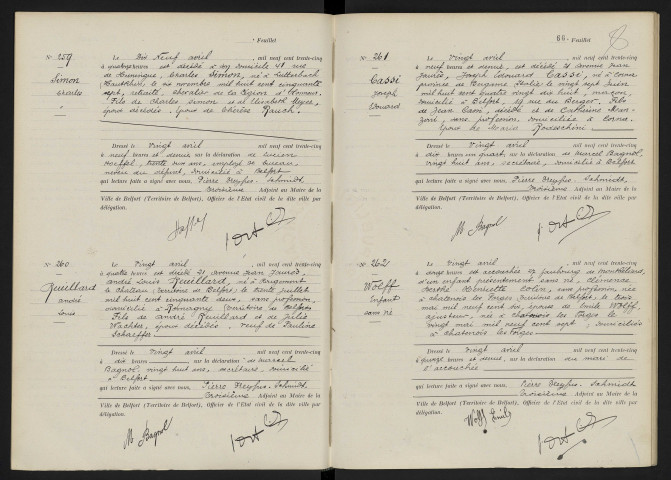 Feuillet
N° 259
Simon
Charles
Le Dix Neuf avril mil neuf cent trente-cinq
à quatorze heures est décédé à son domicile 41 rue
de Huningue, Charles Simon, né à Lutterbach
(Haut-Rhin) le novembre mil huit cent cinquante
sept, retraité, chevalier de la Légion d'Honneur.
Fils de Charles Simon et de Elisabeth Meyer,
époux décédés. Epoux de Thérèse Rauch.
Dressé le vingt avril mil neuf cent trente-cinq
à neuf heures et demie sur la déclaration de Lucien
Hoeffel, trente six ans, employé de bureau
neveu du défunt, domicilié à Belfort
qui lecture faite a signé avec nous, Pierre Dreyfus-Schmidt
Troisième Adjoint au Maire de la
Ville de Belfort (Territoire de Belfort), Officier de l'Etat civil de la dite ville par
délégation.
N° 260
Reuillard
André
Louis
Le vingt avril mil neuf cent trente-cinq
à quatre heures est décédé 21 avenue Jean Jaurès
André Louis Reuillard, né à Rougemont
le Château, Territoire de Belfort, le trente juillet
mil huit cent cinquante deux, sans profession,
domicilié à Romagny Territoire de Belfort
Fils de André Reuillard et de Julie
Wachter, époux décédés. Veuf de Pauline
Schaeffer.
Dressé le vingt avril mil neuf cent trente-cinq
à dix heures sur la déclaration de Marcel
Bagnol, vingt huit ans, secrétaire, domicilié
à Belfort
qui lecture faite a signé avec nous, Pierre Dreyfus-Schmidt
Troisième Adjoint au Maire de la
Ville de Belfort (Territoire de Belfort), Officier de l'Etat civil de la dite ville par
délégation.
M Bagnol
66 Feuillet
N° 261
Cassi
Joseph
Edouard
Le vingt avril mil neuf cent trente-cinq
à neuf heures et demie, est décédé 21 avenue Jean
Jaurès, Joseph Edouard Cassi, né à Corna
province de Bergame Italie le vingt sept juin
mil huit cent quatre vingt dix huit, maçon,
domicilié à Belfort, 15 rue du Berger. Fils
de Jean Cassi, décédé et de Catherine
sans profession, domiciliée à Corna.
Epoux de Maria Rodeschini
Dressé le vingt avril mil neuf cent trente-cinq
à dix heures un quart sur la déclaration de Marcel Bagnol,
vingt huit ans, secrétaire, domicilié à Belfort
qui lecture faite a signé avec nous, Pierre Dreyfus-Schmidt,
Troisième Adjoint au Maire de la
Ville de Belfort (Territoire de Belfort), Officier de l'Etat civil de la dite ville par
délégation.
M Bagnol
N° 262
Wolff
Enfant
sans vie
Le vingt avril mil neuf cent trente-cinq
à douze heures est accouchée 23 faubourg de Montbéliard,
d'un enfant présentement sans vie, Clémence
Henriette Colin, sans profession, née
à Chatenois les Forges, Territoire de Belfort, le trois
mai mil neuf cent dix, épouse de Emile Wolff,
ajusteur, né à Chatenois les Forges le
vingt mai mil neuf cent sept, domiciliés
à Chatenois les Forges
Dressé le vingt avril mil neuf cent trente-cinq
à quinze heures et demie, sur la déclaration du mari de
l'accouchée
qui lecture faite a signé avec nous, Pierre Dreyfus-Schmidt
Troisième Adjoint au Maire de la
Ville de Belfort (Territoire de Belfort), Officier de l'Etat civil de la dite ville par
délégation.
Wolff Emile